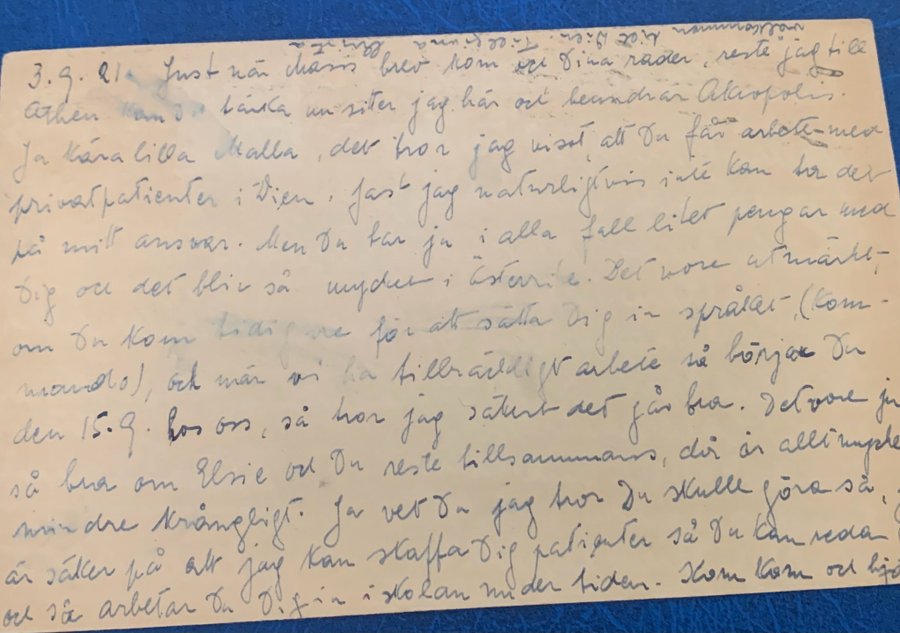 3.9.21. Just när Masis brev kom och Dina rader, reste jag till
Athen tänka nu sitter jag här och beundrar Akropolis.
Ja kära lilla Malla, det tror jag visst, att Du får arbete med
privatpatienter i Wien, fast jag naturligtvis inte kan ta det
på mitt ansvar. Men Du tar ju i alla fall litet pengar med
Dig och det bliv så mycket i Österrike. Det vore utmärkt,
om Du kom tidigare för att sätta Dig in språket, (Kom-
mando), och när vi ha tillräckligt arbete så börjar Du
den 15.9. hos oss, så tror jag säkert det går bra. Det vore ju
så bra om Elsie och Du reste tillsammans, då är allt mycke
mindre krångligt. Ja vet Du jag tror Du skulle göra så,
är säker på att jag kan skaffa Dig patienter så Du kan redan
och så arbetar Du Dig in i skolan under tiden. Kom kom och